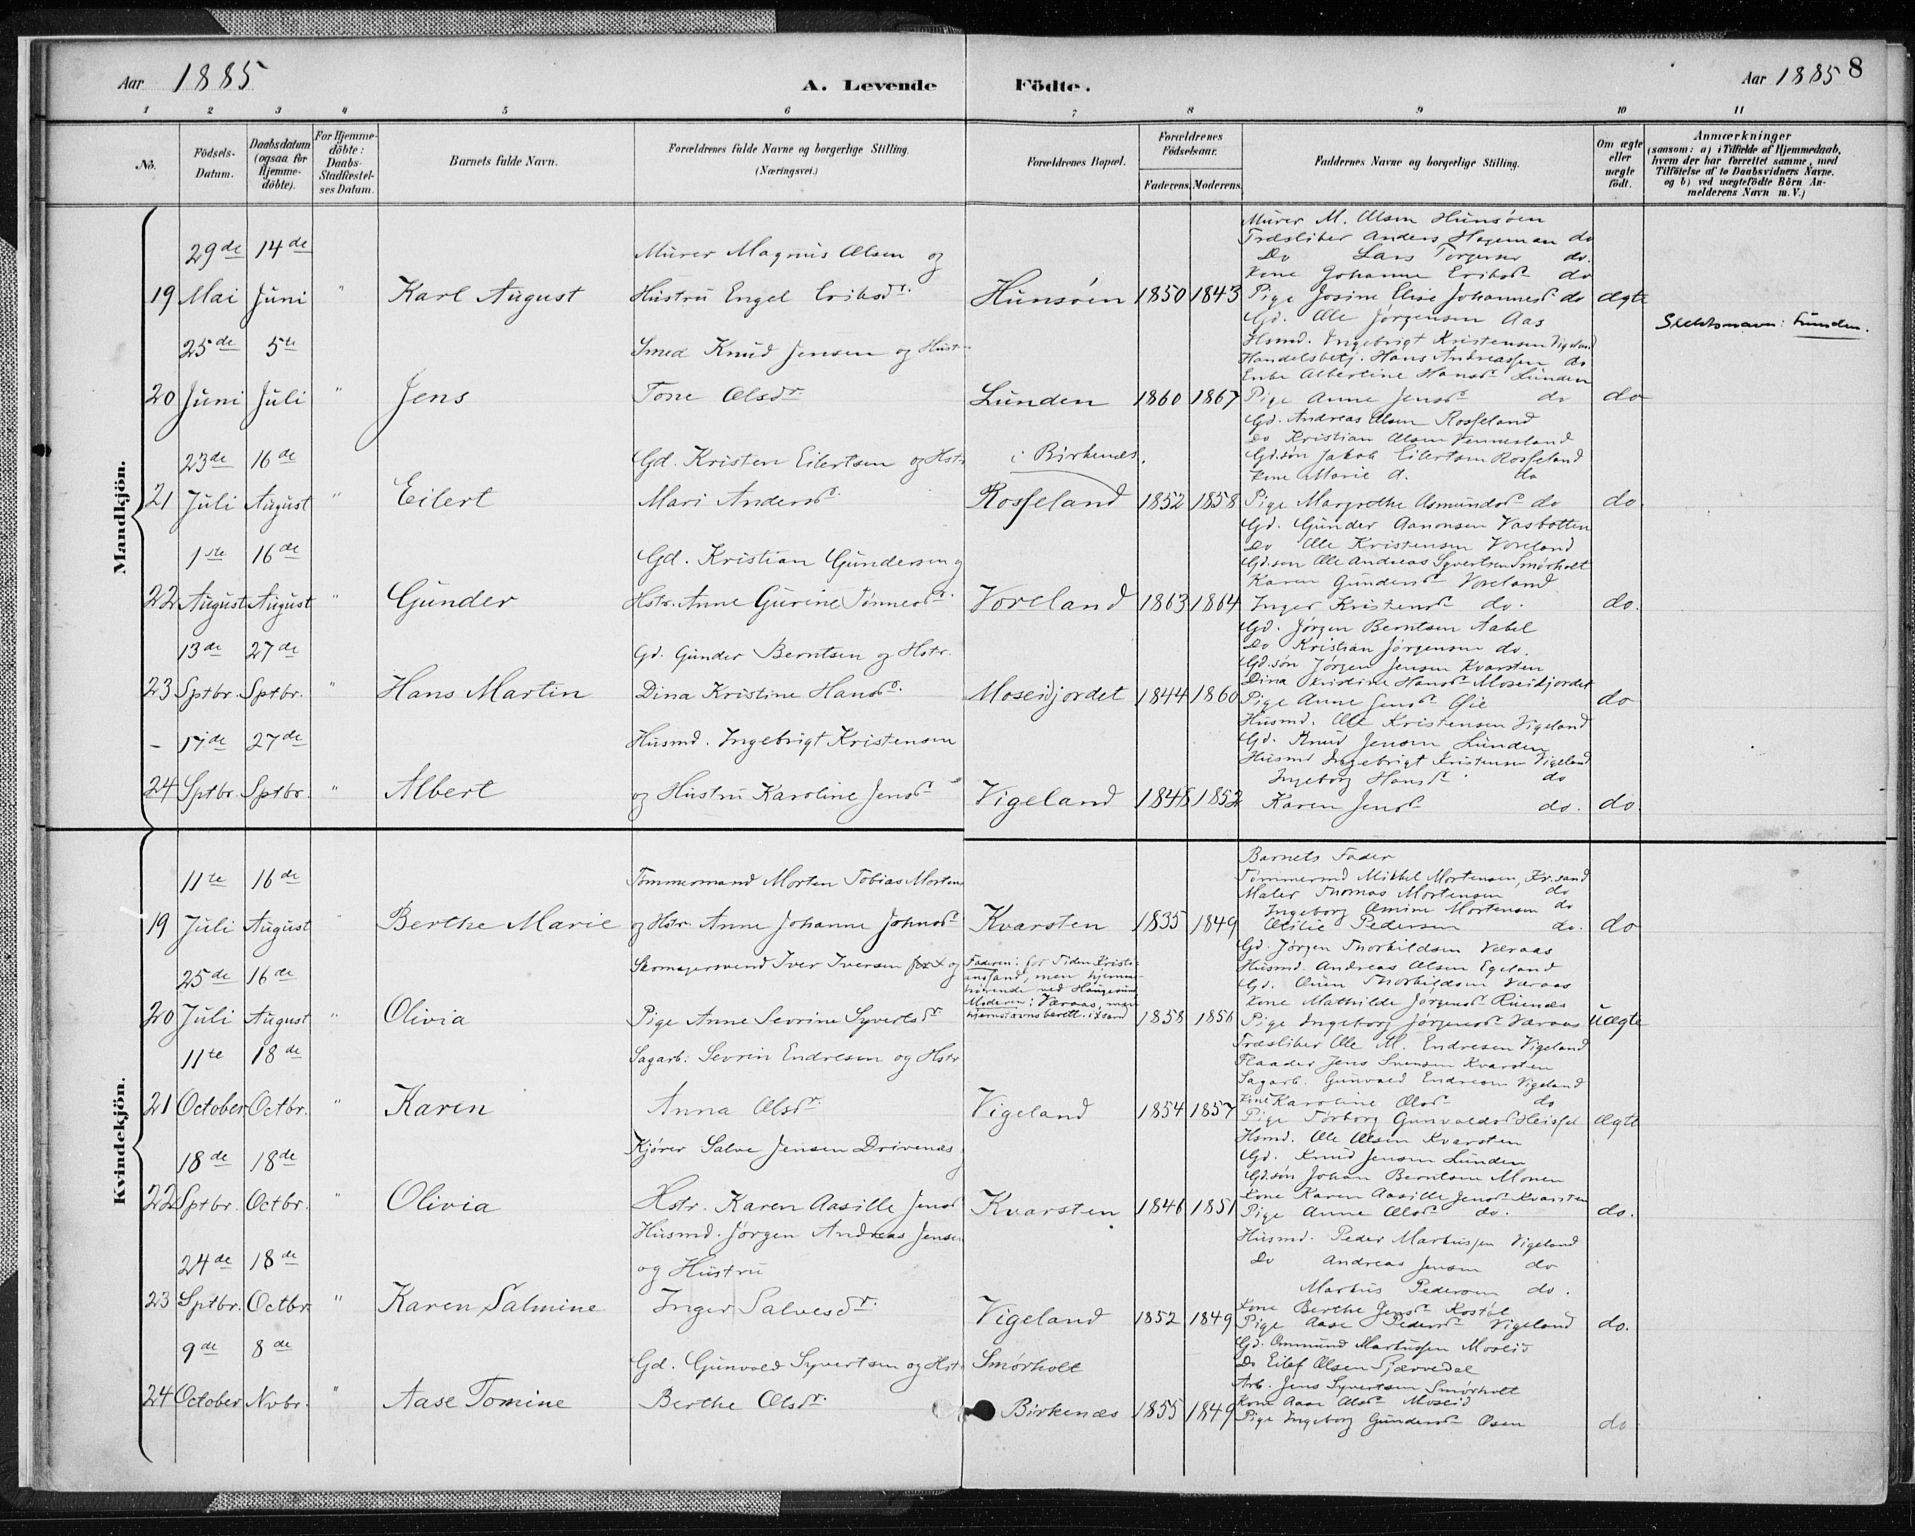 Aar 1885
A. Levende Födte.
Aar 1885 8
1 2 3 4 5 6 7 8 9 10 11
Nò.
Födsels-Datum.
Daabsdatum (ogsaa for Hjemme-döbte).
For Hjemme-döbte: Daabs-Stadfæstel-ses Datum.
Barnets fulde Navn.
Forældrenes fulde Navne og borgerlige Stilling. (Næringsvei.)
Forældrenes Bopæl.
Forældrenes Födselsaar.
Faderens. Moderens.
Faddernes Navne og borgerlige Stilling.
Om ægte eller uægte født.
Anmærkninger
(saasom: a) i Tilfælde af Hjemmedaab, hvem der har forrettet samme, med Tilföielse af to Daabsvidners Navne. og b) ved uægtefödte Börn An-melderens Navn m. V.)
Mandkjön.
Murer M. Olsen Hunsøen
29de 14de Murer Magnus Olsen og Træsliber Anders Hageman do
Do Lars Torgersen do.
Kone Johanne Eriksdr do
19 Mai Juni " Karl August Hustru Engel Eriksdr. Hunsøen 1850 1843 Pige Josine Elise Johannesdr do ægte
Gd. Ole Jørgensen Aas
Slektsnavn: Lunden.
25de 5te Smed Knud Jensen og Hust Hsmd. Ingebrigt Kristensen Vigeland
Handelsbetj. Hans Andreassen do
Enke Albertine Hansdr Lunden
20 Juni Juli " Jens Tone Olsdr. Lunden 1860 1867 Pige Anne Jensdr do do
Gd. Andreas Olsen Rosseland
Do Kristian Olsen Vennesland
23de 16de Gd. Kristen Eilertsen og Hstr i Birkenæs. Gd.søn Jakob Eilertsen Rosseland
Kone Marie A. do
21 Juli August " Eilert Mari Andersdr. Rosseland 1852 1858 Pige Margrethe Asmundsdr do do.
Gd. Gunder Aanonsen Vasbotten
1ste 16de Gd. Kristian Gundersen og Do Ole Kristensen Voreland
Gd.søn Ole Andreas Syvertsen Smørholt
Karen Gundersdr Voreland
22 August August " Gunder Hstr. Anne Gurine Tønnesdr. Voreland 1863 1864 Inger Kristensdr do. do.
Gd. Jørgen Berntsen Aabel
13de 27de Gd. Gunder Berntsen og Hstr. Do Kristian Jørgensen do.
Gd.søn Jørgen Jensen Kvarsten
Dina Kristine Hansdr Moseidjordet
23 Sptbr. Sptbr. " Hans Martin Dina Kristine Hansdr. Moseidjordet 1844 1860 Pige Anne Jensdr Øie do
Husmd. Ole Kristensen Vigeland
- 17de 27de Husmd. Ingebrigt Kristensen Gd. Knud Jensen Lunden
Husmd Ingebrigt Kristensen Vigeland
Ingeborg Hansdr do
24 Sptbr. Sptbr. " Albert og Hustru Karoline Jensdr Vigeland 1848 1852 Karen Jensdr do. do.
Kvindekjön.
Barnets Fader
11te 16de Tømmermand Morten Tobias Mortens Tømmermd Mikkel Mortensen, Kr.sand
Maler Thomas Mortensen do
Ingeborg Omine Mortensen do
19 Juli August " Berthe Marie og Hstr. Anne Johanne Johnsdr Kvarsten 1835 1849 Otilie Pedersen do. do
Gd. Jørgen Thorkildsen Væraas
25de 16de Skomagersvend Iver Iversen og Faderen: for Tiden Kristiansand, men hjemmehørende ved Haugesund Husmd. Andreas Olsen Egeland
Gd. Ouen Thorkildsen Væraas
Moderen: Væraas, men hjemstavnsberett. i Xsand Kone Mathilde Jørgensdr Ruenæs
20 Juli August " Olivia Pige Anne Sevrine Syvertsdr 1858 1856 Pige Ingeborg Jørgensdr Væraas Uægte
11te 18de Sagarb. Sevrin Endresen og Hstr Træsliber Ole M. Endresen Vigeland
Flaader Jens Svensen Kvarsten
Sagarb. Gunvald Endresen Vigeland
Kone Karoline Olsdr do
21 October Octbr. " Karen Anna Olsdr. Vigeland 1854 1857 Pige Torborg Gunvaldsdr Heissel Ægte
Hsmd. Ole Olsen Kvarsten
18de 18de Kjører Salve Jensen Drivenæs Gd. Knud Jensen Lunden
Gd.søn Johan Berntsen Monen
Kone Karen Aasille Jensdr Kvarsten
22 Sptbr. Octbr. " Olivia Hstr. Karen Aasille Jensd Kvarsten 1846 1851 Pige Anne Olsdr do. do.
24de 18de Husmd. Jørgen Andreas Jensen Husmd. Peder Markussen Vigeland
og Hustru Do Andreas Jensen do
Markus Pedersen do.
Kone Berthe Jensdr Kostøl
23 Sptbr. Octbr. " Karen Salmine Inger Salvesdr. Vigeland 1852 1849 Pige Aase Pedersdr Vigeland do.
Gd. Ommund Markussen Moseid
9de 8de Gd. Gunvald Syvertsen og Hst Smørholt Do Eilef Olsen Tjærvedal
Arb. Jens Syvertsen Smørholt
Kone Aase Olsdr Moseid
24 October Nvbr. " Aase Tomine Berthe Olsdr. Birkenæs 1855 1849 Pige Ingeborg Gundersdr Osen do